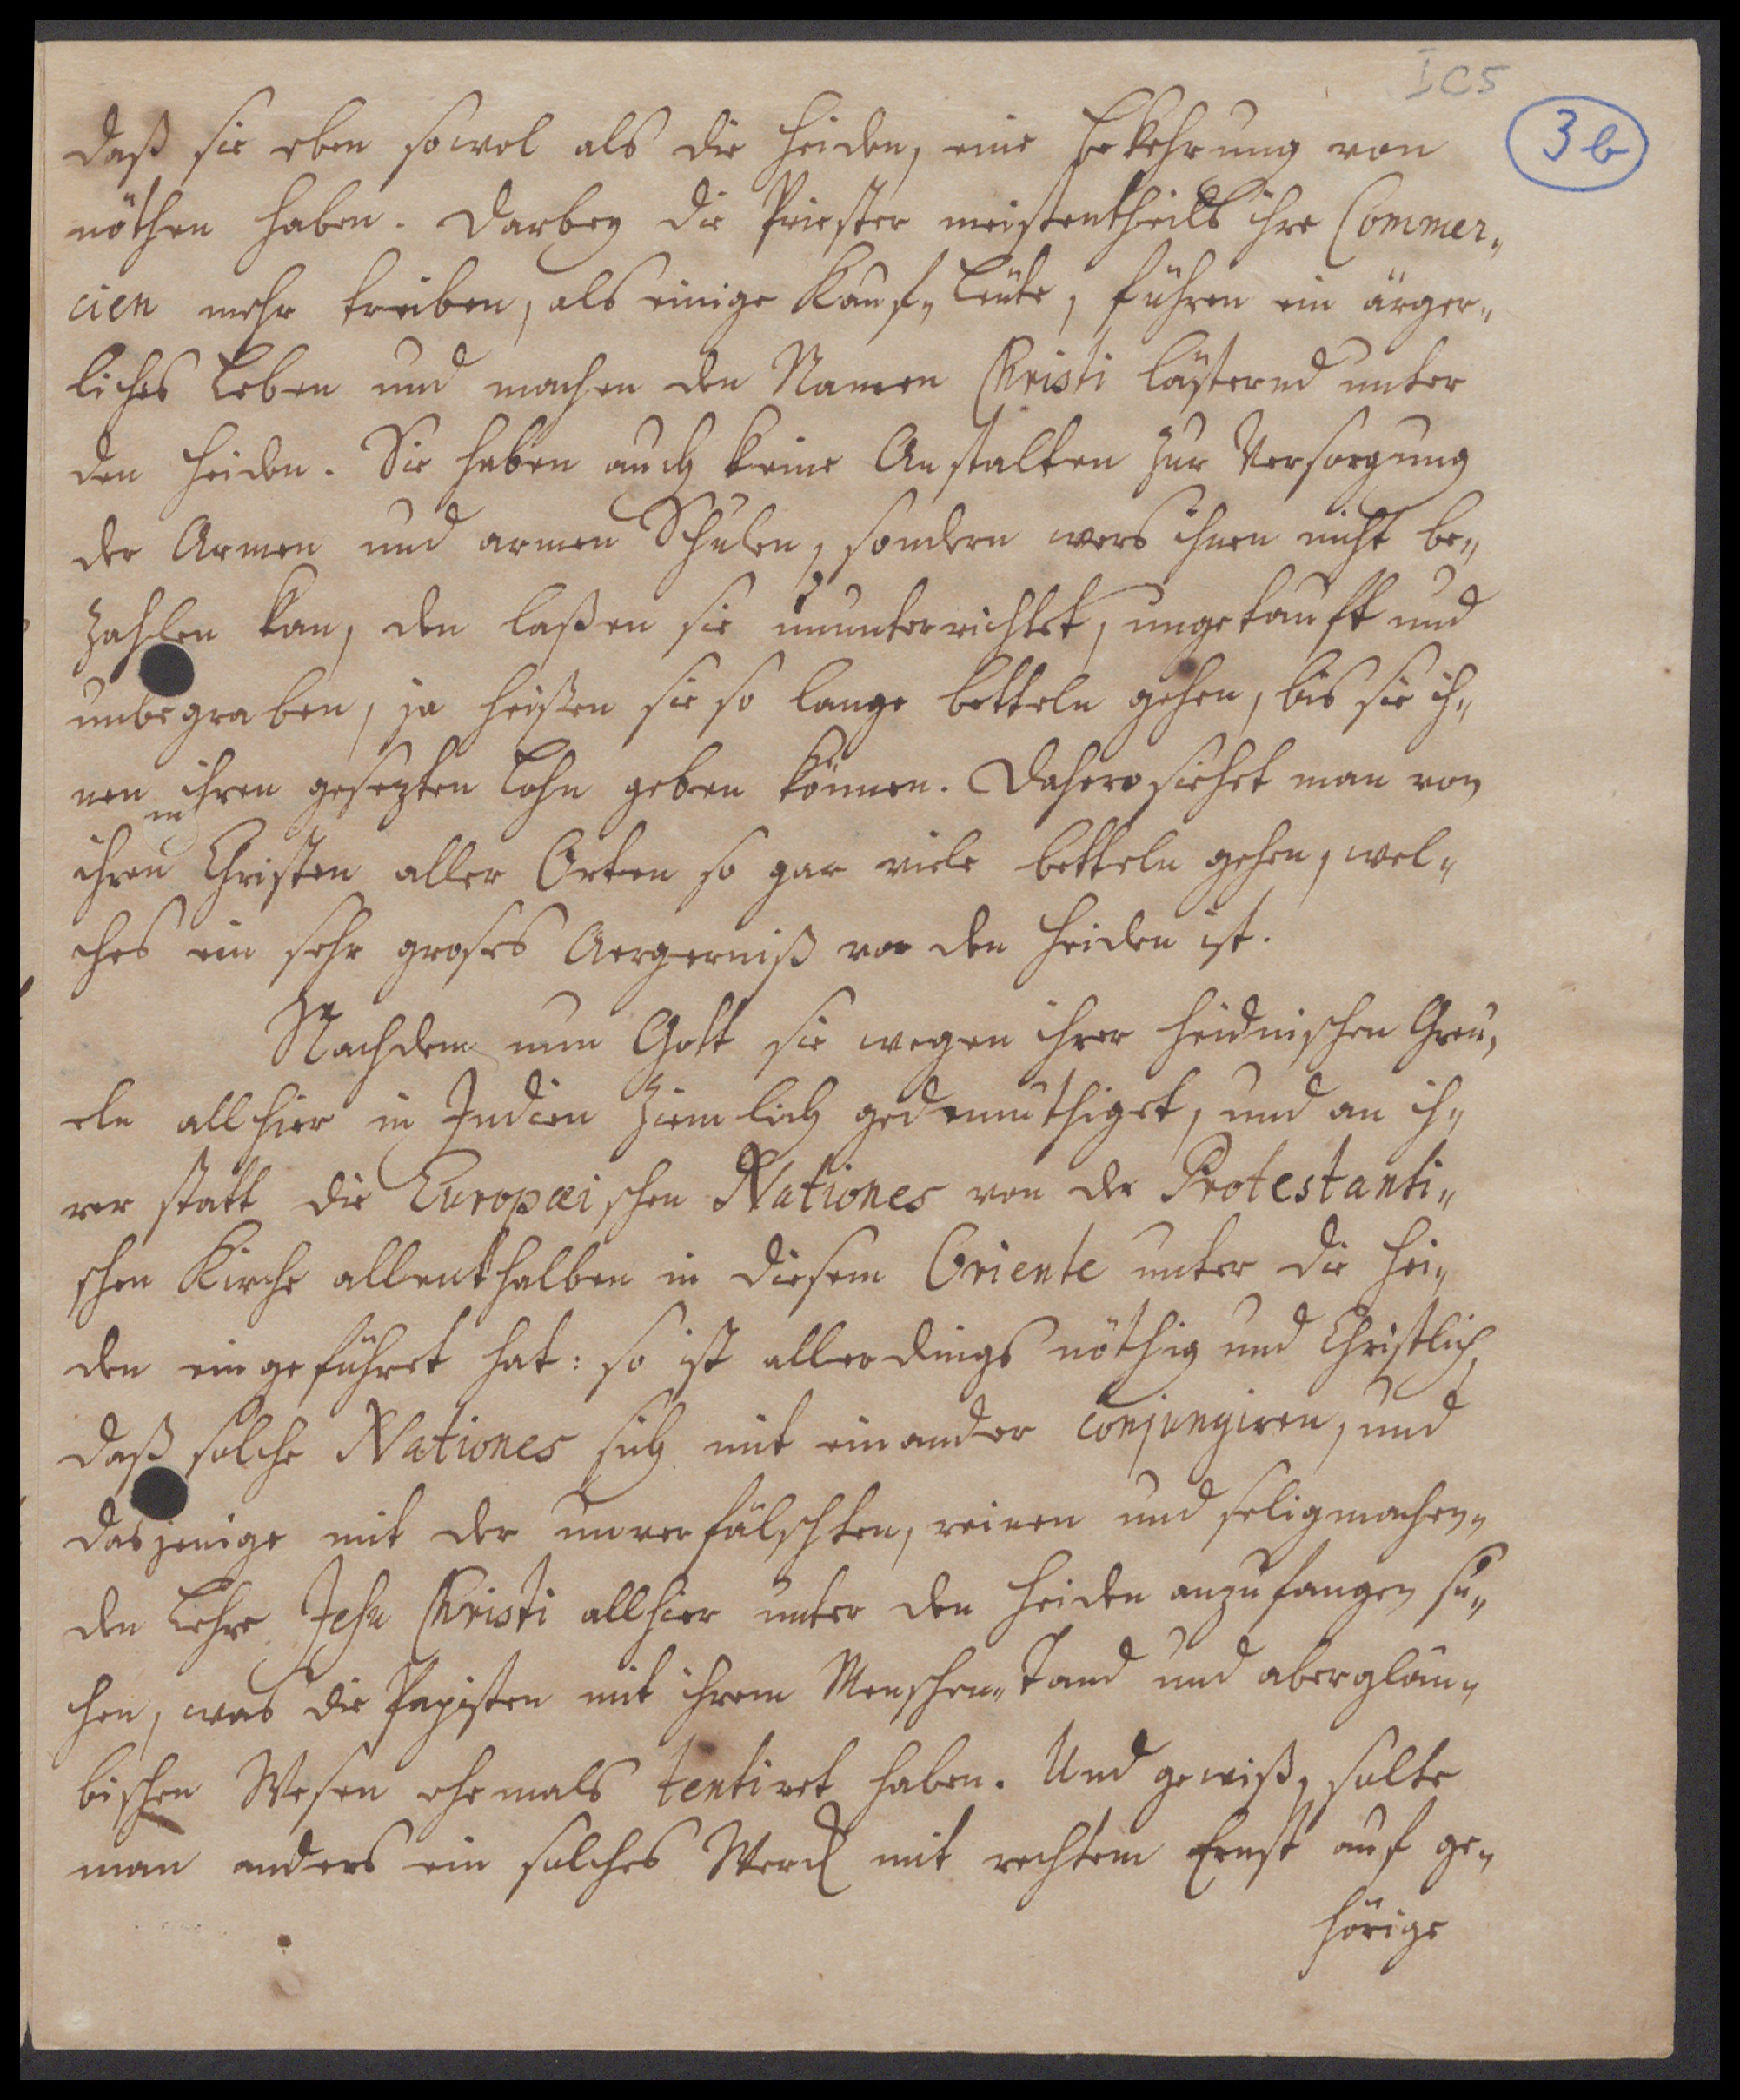 I C 5
3 b
daß sie eben sowol als die Heiden, eine Bekehrung von
nöthen haben. Darbey die Priester meistentheils ihre Commer„
cien mehr treiben, als einige Kauf„Leüte, führen ein ärger„
liches Leben und machen den Namen Christi lästernd unter
den Heiden. Sie haben auch keine Anstalten zur Versorgung
der Armen und armen Schulen, sondern wers ihnen nicht be„
zahlen kan, den laßen sie ununterrichtet, ungetaufft und
unbegraben, ja heißen sie so lange betteln gehen, bis sie ih„
nen ihren gesezten Lohn geben können. Dahero siehet man von
ihren Christen aller Orten so gar viele betteln gehen, wel„
ches ein sehr groses Aergerniß vor den Heiden ist.
Nachdem nun Gott sie wegen ihrer heidnischen Greu„
eln allhier in Indien ziemlich gedemüthiget, und an ih„
rer statt die Europæischen Nationes von der Protestanti„
schen Kirche allenthalben in diesem Oriente unter die Hei„
den eingeführet hat: so ist allerdings nöthig und Christlich,
daß solche Nationes sich mit einander conjungiren, und
dasjenige mit der unverfälschten, reinen und seligmachen„
den Lehre Jesu Christi allhier unter den Heiden anzufangen su„
chen, was die Papisten mit ihrem Menschen„Tand und abergläu„
bischen Wesen ehemals tentiret haben. Und gewiß, solte
man anders ein solches Werck mit rechtem Ernst auf ge„
hörige